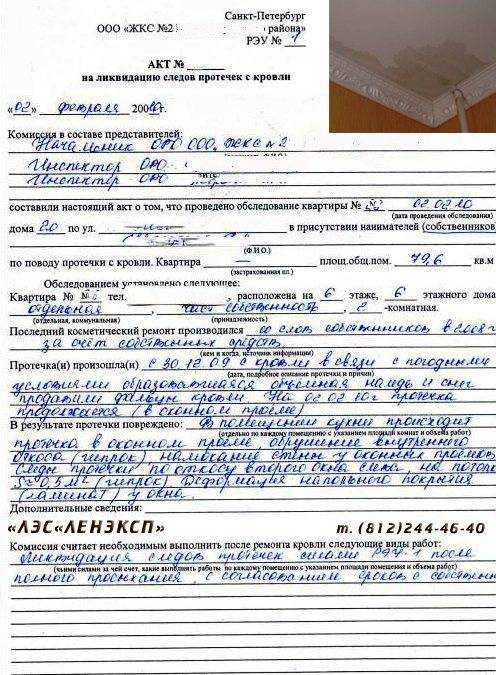 Санкт-Петербург
ООО «ЖКС №2 района»
РЭУ № 1
АКТ №
на ликвидацию следов протечек с кровли
«02» февраля 2010г.
Комиссия в составе представителей:
Начальник ОРО ООО, ЖКС №2
Инспектор ОРО
Инспектор ОРО
составили настоящий акт о том, что проведено обследование квартиры № 02 02 10
(дата проведения обследования)
дома 20 по ул. в присутствии нанимателей (собственников
(Ф.И.О.)
по поводу протечки с кровли. Квартира — площ.общ.пом. 79,6 кв.м
(застрахованная пл.)
Обследованием установлено следующее:
Квартира № тел. , расположена на 6 этаже, 6 этажного дома
отдельная, част собственность, 2 -комнатная.
(отдельная, коммунальная) (принадлежность)
Последний косметический ремонт производился со слов собственников в 2008г
за счёт собственных средств
(кем и когда, источник информации)
Протечка(и) произошла(и) с 30.12.09 с кровли в связи с погодными
(дата, подробное описание протечки и причин)
условиями образовавшаяся объемная наледь и снег
продавили фальцы кровли. На 02 02 10г протечка
продолжается (в оконном проёме)
В результате протечки повреждено: В помещении кухни происходит
(отдельно по каждому помещению с указанием площади комнат и объема работ)
протечка в оконном проёме обрушение внутреннего
откоса (гипрок) намокание стены у оконных проёмов
следы протечки по откосу второго окна слева на потолке
S≈0,5м² (гипрок) Деформация напольного покрытия
(ламинат) у окна.
Дополнительные сведения:
«ЛЭС«ЛЕНЭКСП» т. (812)244-46-40
Комиссия считает необходимым выполнить после ремонта кровли следующие виды работ:
Ликвидация следов протечек силами РЭУ-1 после
(чьими силами за чей счет, какие выполнить работы по каждому помещению с указанием площади помещения и объема работ)
полного просыхания с согласованием сроков с собственн